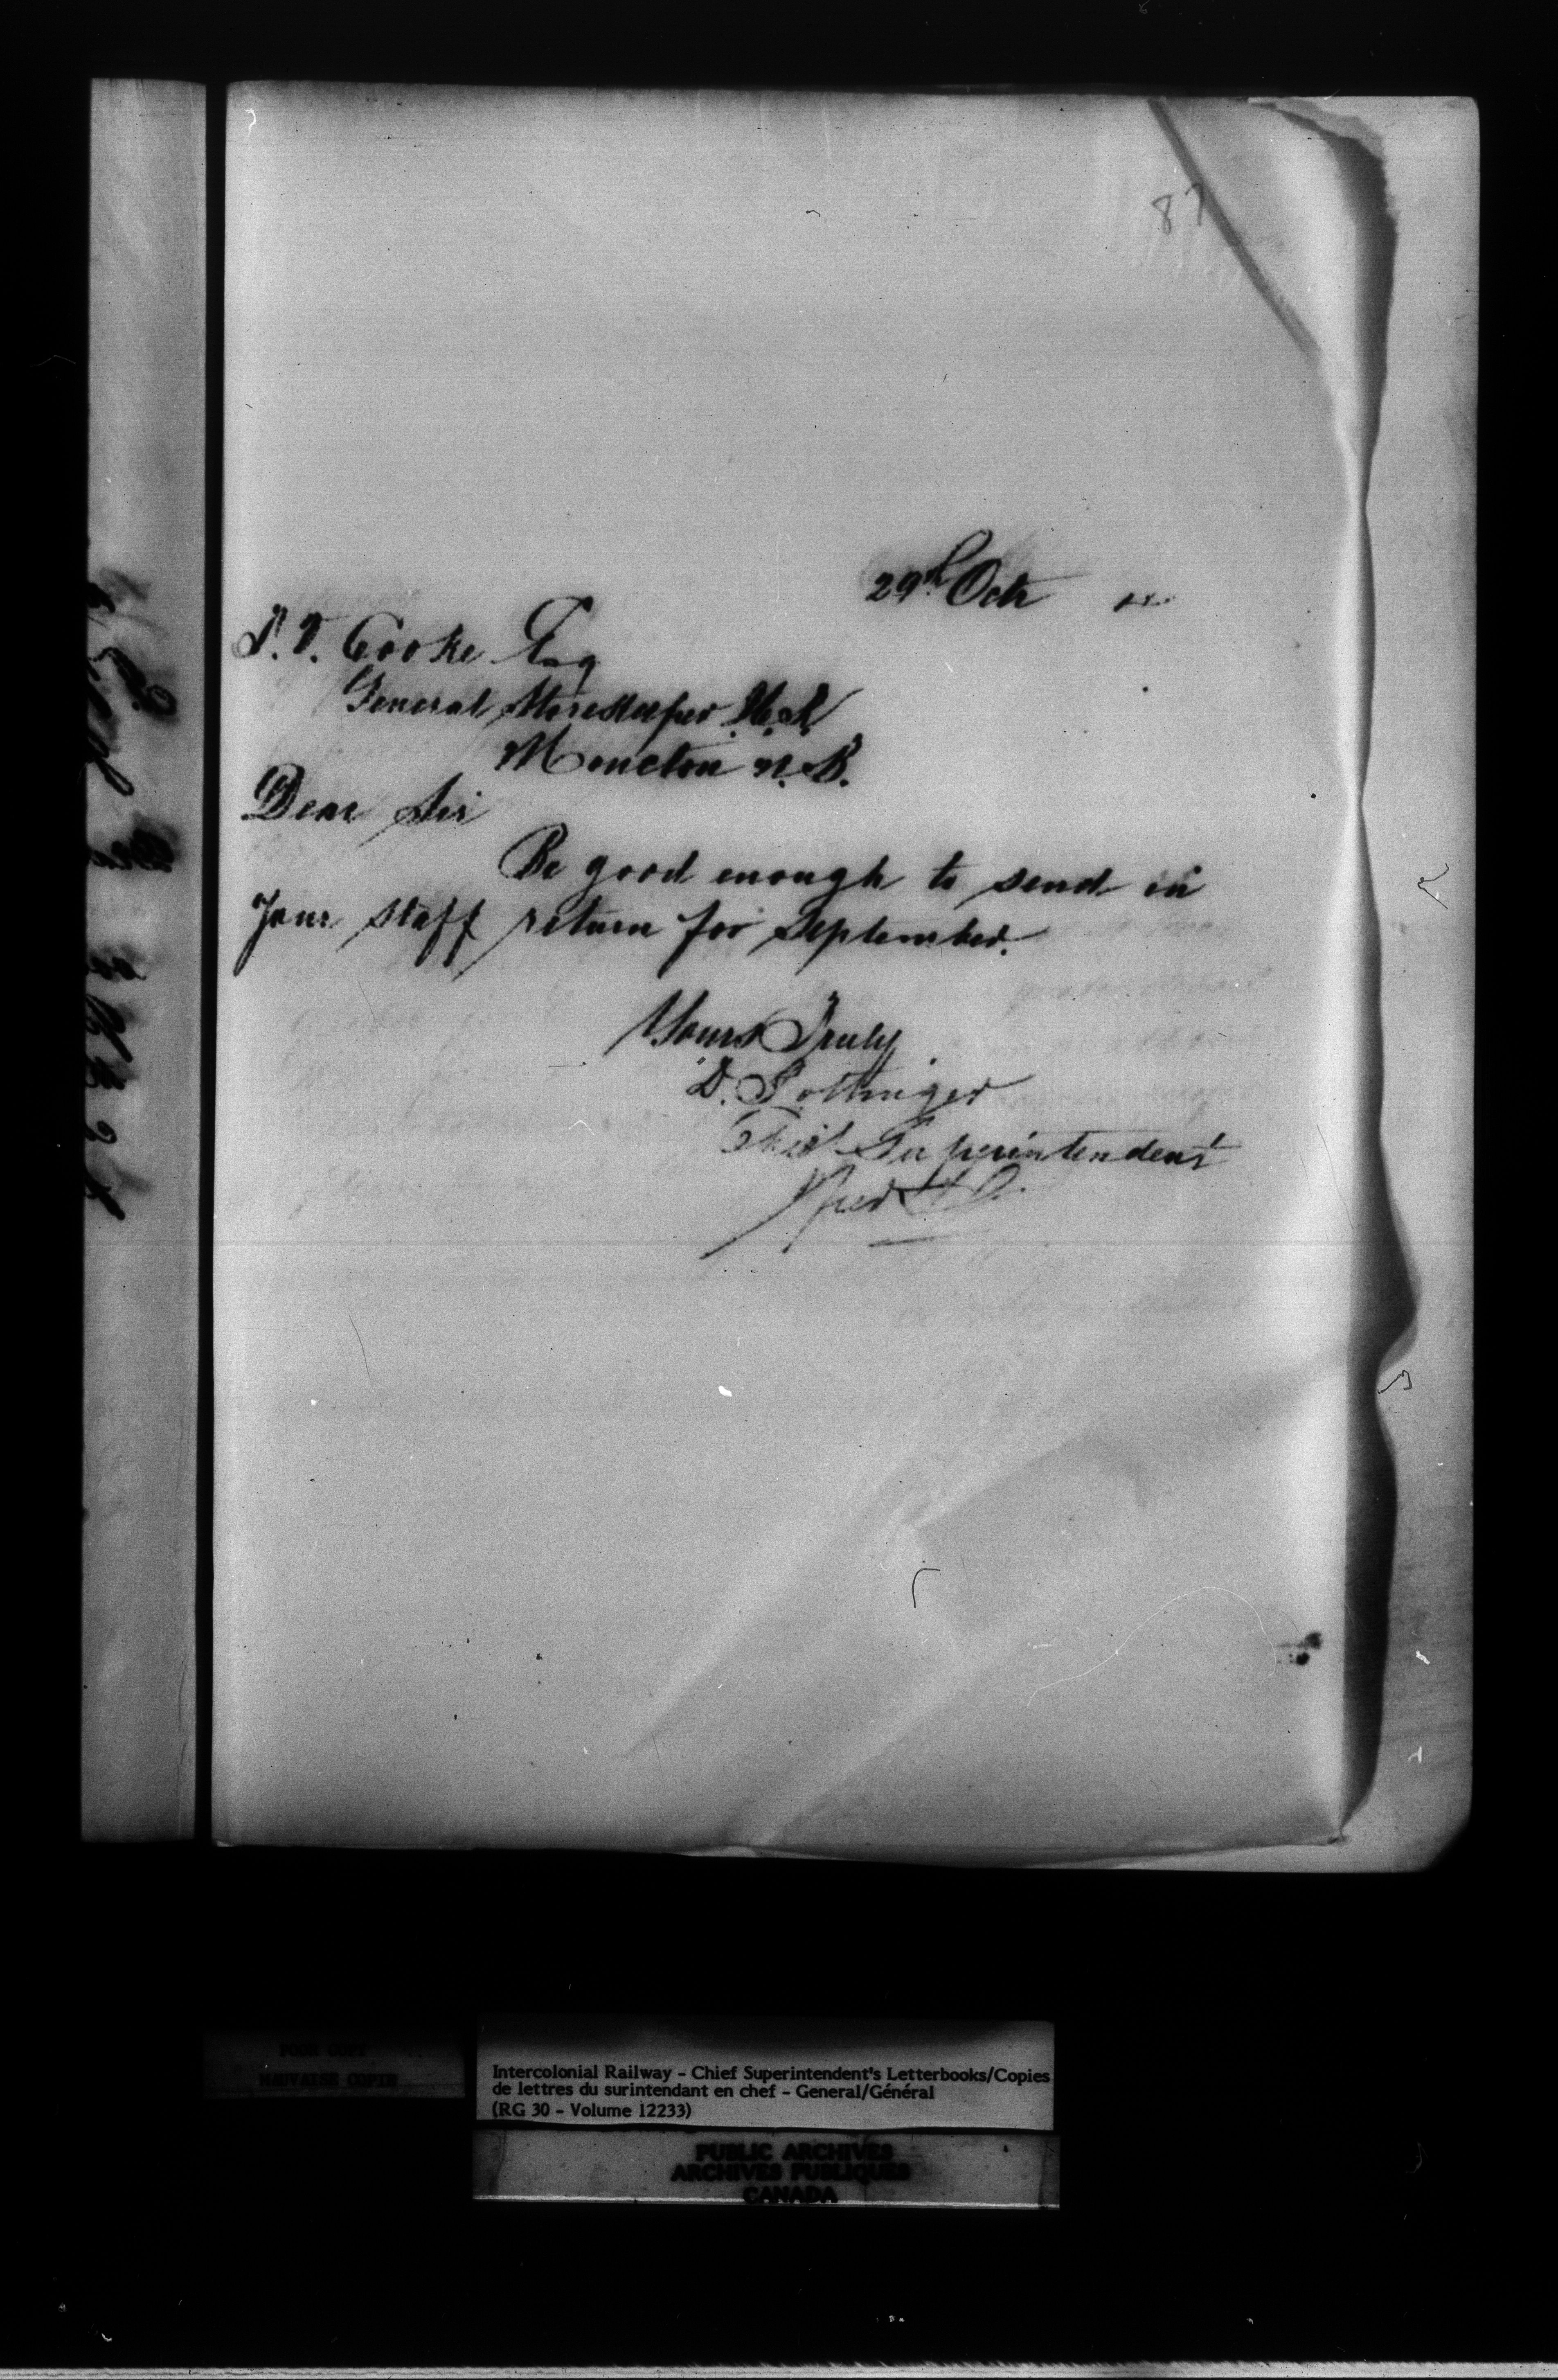 87
29th Octr
T. V. Cooke Esq
General Storekeeper I.C.R.
Moncton N.B.
Dear Sir
Be good enough to send in
your staff return for September.
Yours Truly
D. Pottinger
Chief Superintendent
Per
POOR COPY
MAUVAISE COPIE
Intercolonial Railway - Chief Superintendent's Letterbooks/Copies
de lettres du surintendant en chef - General/Général
(RG 30 - Volume 12233)
PUBLIC ARCHIVES
ARCHIVES PUBLIQUES
CANADA